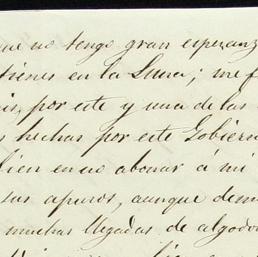 que no tengo gran esperanz
tienes en la Suma; me f
is, por este y una de las
s hechas por este Gobiern
bien en no abonar á mi
sus apuros, aunque dem
muchas llegadas de algodo